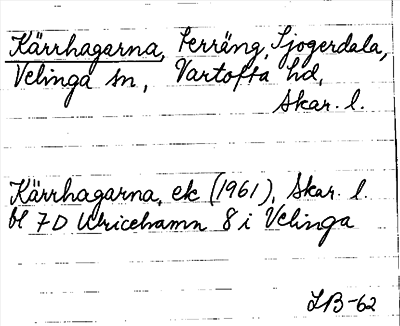 Kärrhagarna, Terräng, Sjogerdala,
Velinga sn, Vartofta hd,
Skar. l.
Kärrhagarna, ek (1961), Skar. l.
bl 7D Ulricehamn 8 i Velinga
LB-62